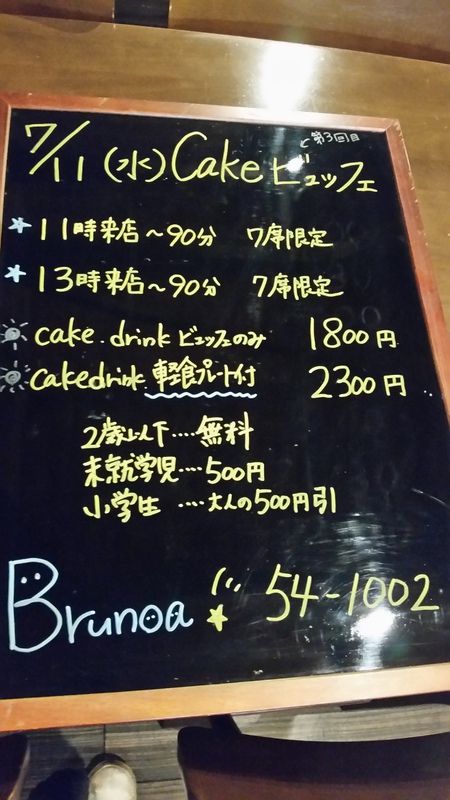 第3回目
7/11(水)Cakeビュッフェ
11時来店〜90分 7席限定
13時来店〜90分 7席限定
cake.drinkビュッフェのみ 1800円
cakedrink軽食プレート付 2300円
2歳以下‥‥無料
未就学児‥‥500円
小学生‥‥大人の500円引
Brunoa 54-1002